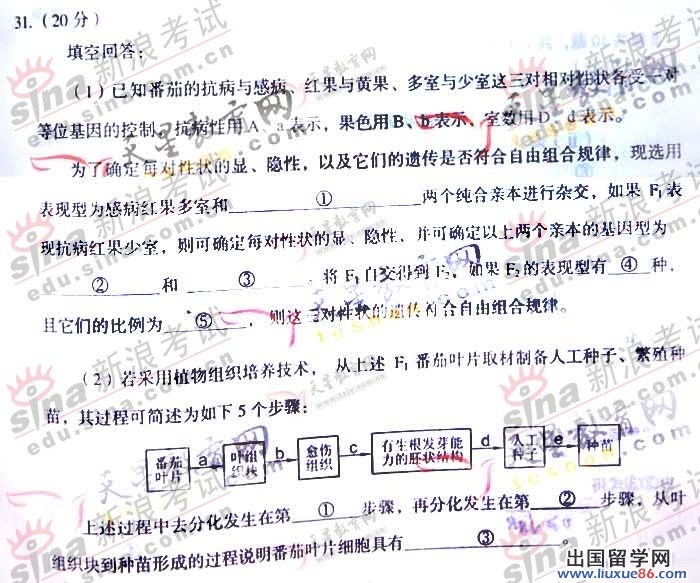 31.(20分)
填空回答:
(1)已知番茄的抗病与感病、红果与黄果、多室与少室这三对相对性状各受一对
等位基因的控制,抗病性用A、a表示,果色用B、b表示、室数用D、d表示。
为了确定每对性状的显、隐性,以及它们的遗传是否符合自由组合规律,现选用
表现型为感病红果多室和 ① 两个纯合亲本进行杂交,如果F₁表
现抗病红果少室,则可确定每对性状的显、隐性,并可确定以上两个亲本的基因型为
② 和 ③ 。将F₁自交得到F₂,如果F₂的表现型有 ④ 种,
且它们的比例为 ⑤ ,则这三对性状的遗传符合自由组合规律。
(2)若采用植物组织培养技术,从上述F₁番茄叶片取材制备人工种子、繁殖种
苗,其过程可简述为如下5个步骤:
番茄叶片 a 叶组织块 b 愈伤组织 c 有生根发芽能力的胚状结构 d 人工种子 e 种苗
上述过程中去分化发生在第 ① 步骤,再分化发生在第 ② 步骤,从叶
组织块到种苗形成的过程说明番茄叶片细胞具有 ③ 。
sina 新浪考试
edu.sina.com.cn
天星教育网
www.txjy.com
tesoon.com
出国留学网
www.liuxue86.com